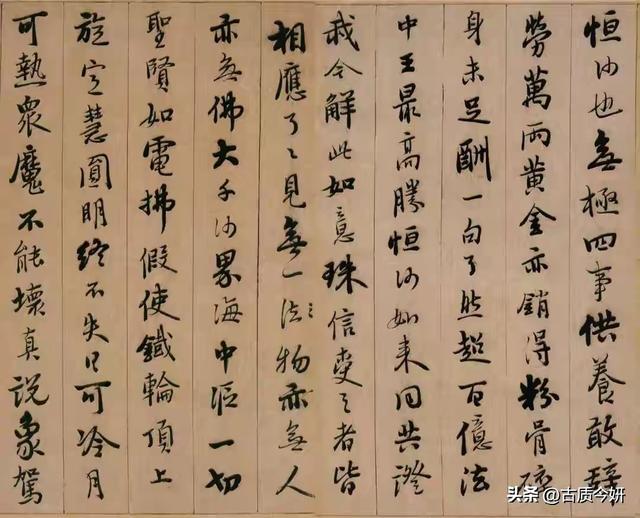 恒沙也無極四事供養敢辭
勞萬兩黃金亦銷得粉骨碎
身未足酬一句了然超百億法
中王最高勝恒沙如来同共證
我今解此如意珠信受之者皆
相應了〻見無一法物亦無人
亦無佛大千沙界海中漚一切
聖賢如電拂假使鐵輪頂上
旋定慧圓明終不失日可冷月
可熱衆魔不能壞真說象駕
头条 @古质今妍